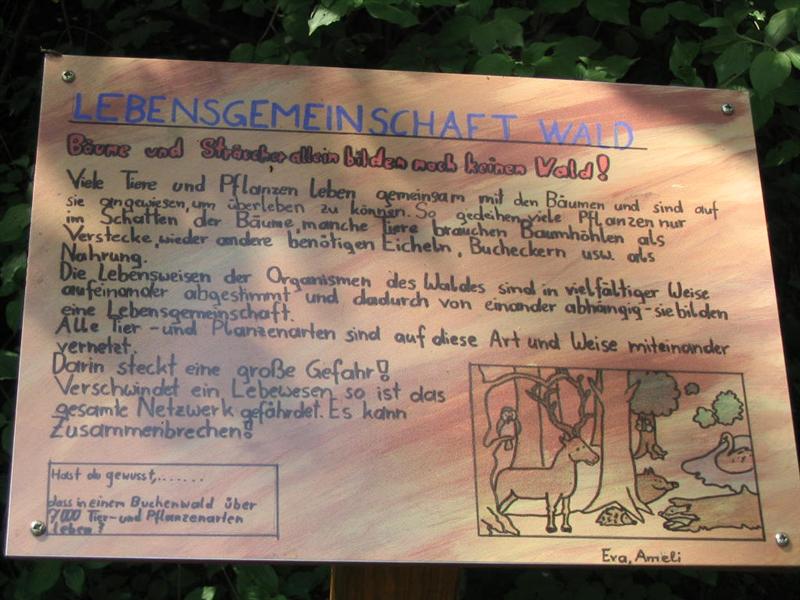 LEBENSGEMEINSCHAFT WALD
Bäume und Sträucher allein bilden noch keinen Wald!
Viele Tiere und Pflanzen leben gemeinsam mit den Bäumen und sind auf
sie angewiesen, um überleben zu können. So gedeihen viele Pflanzen nur
im Schatten der Bäume, manche Tiere brauchen Baumhöhlen als
Verstecke, wieder andere benötigen Eicheln, Bucheckern usw. als
Nahrung.
Die Lebensweisen der Organismen des Waldes sind in vielfältiger Weise
aufeinander abgestimmt und dadurch von einander abhängig - sie bilden
eine Lebensgemeinschaft.
Alle Tier - und Planzenarten sind auf diese Art und Weise miteinander
vernetzt.
Darin steckt eine große Gefahr!
Verschwindet ein Lebewesen so ist das
gesamte Netzwerk gefährdet. Es kann
Zusammenbrechen!
Hast du gewusst,.......
dass in einem Buchenwald über
7000 Tier- und Pflanzenarten
leben?
Eva, Ameli